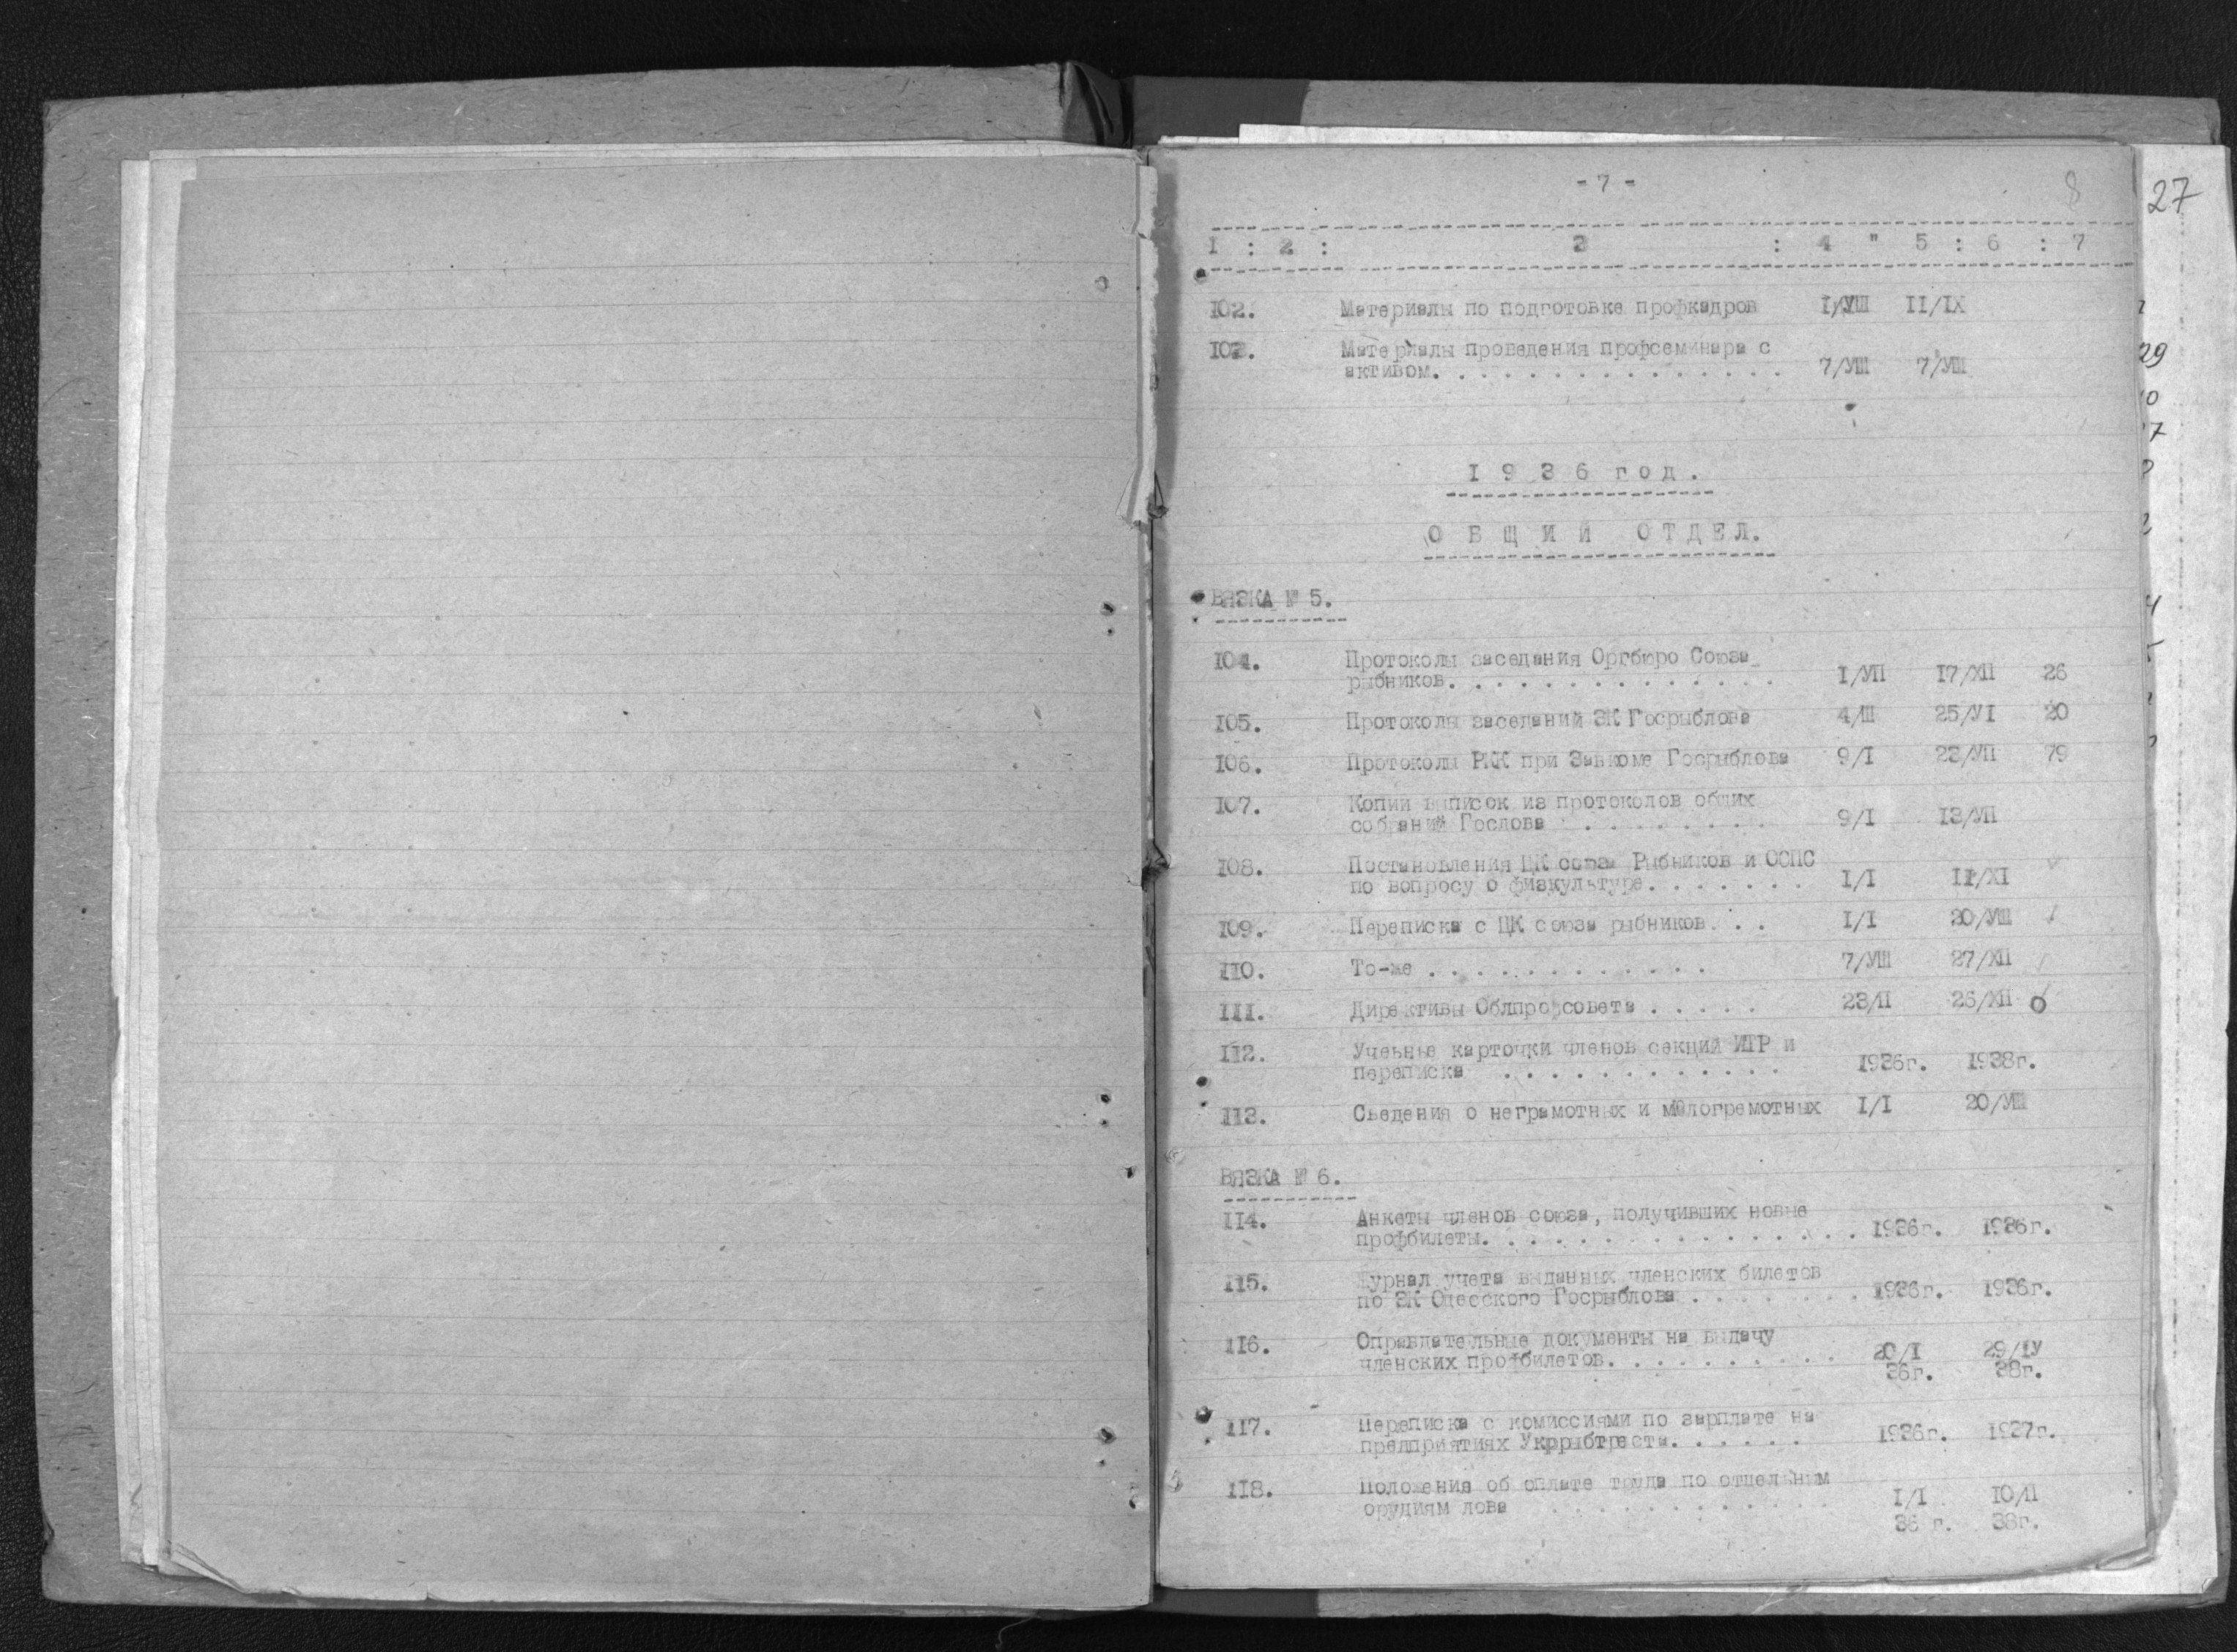 - 7 -
8
27
I : 2 : 3 : 4 " 5 : 6 : 7
102. Материалы по подготовке профкадров I/УШ II/IX
103. Материалы проведения профсеминара с
активом. . . . . . . . . . . . . . . 7/УШ 7/УШ
I 9 3 6 г о д .
О Б Щ И Й О Т Д Е Л.
ВЯЗКА № 5.
I04. Протоколы заседания Оргбюро Союза
рыбников. . . . . . . . . . . . . . I/УП I7/ХП 26
I05. Протоколы заседаний ЗК Госрыблова 4/Ш 25/УI 20
I06. Протоколы РКК при Завкоме Госрыблова 9/I 23/УП 79
I07. Копии выписок из протоколов общих
собраний Гослова . . . . . . . . 9/I I3/УП
I08. Постановления ЦК союза Рыбников и ООПС
по вопросу о физкультуре. . . . . . . I/I II/XI
I09. Переписка с ЦК союза рыбников. . . I/I 20/УШ
II0. То-же . . . . . . . . . . . . 7/УШ 27/ХП
III. Директивы Облпрофсовета . . . . . 23/П 26/ХП
II2. Учебные карточки членов секций ИТР и
переписка . . . . . . . . . . . . I936г. I938г.
II3. Сведения о неграмотных и малогремотных I/I 20/УШ
ВЯЗКА № 6.
II4. Анкеты членов союза, получивших новые
профбилеты. . . . . . . . . . . . . . . . I936г. I936г.
II5. Журнал учета выданных членских билетов
по ЗК Одесского Госрыблова . . . . . . . I936г. I936г.
II6. Оправдательные документы на выдачу
членских профбилетов. . . . . . . . . . 20/I 29/IУ
36г. 38г.
II7. Переписка с комиссиями по зарплате на
предприятиях Укррыбтреста. . . . . . I936г. I937г.
II8. Положения об оплате труда по отдельным
орудиям лова . . . . . . . . . . . . I/I I0/П
36 г. 38г.